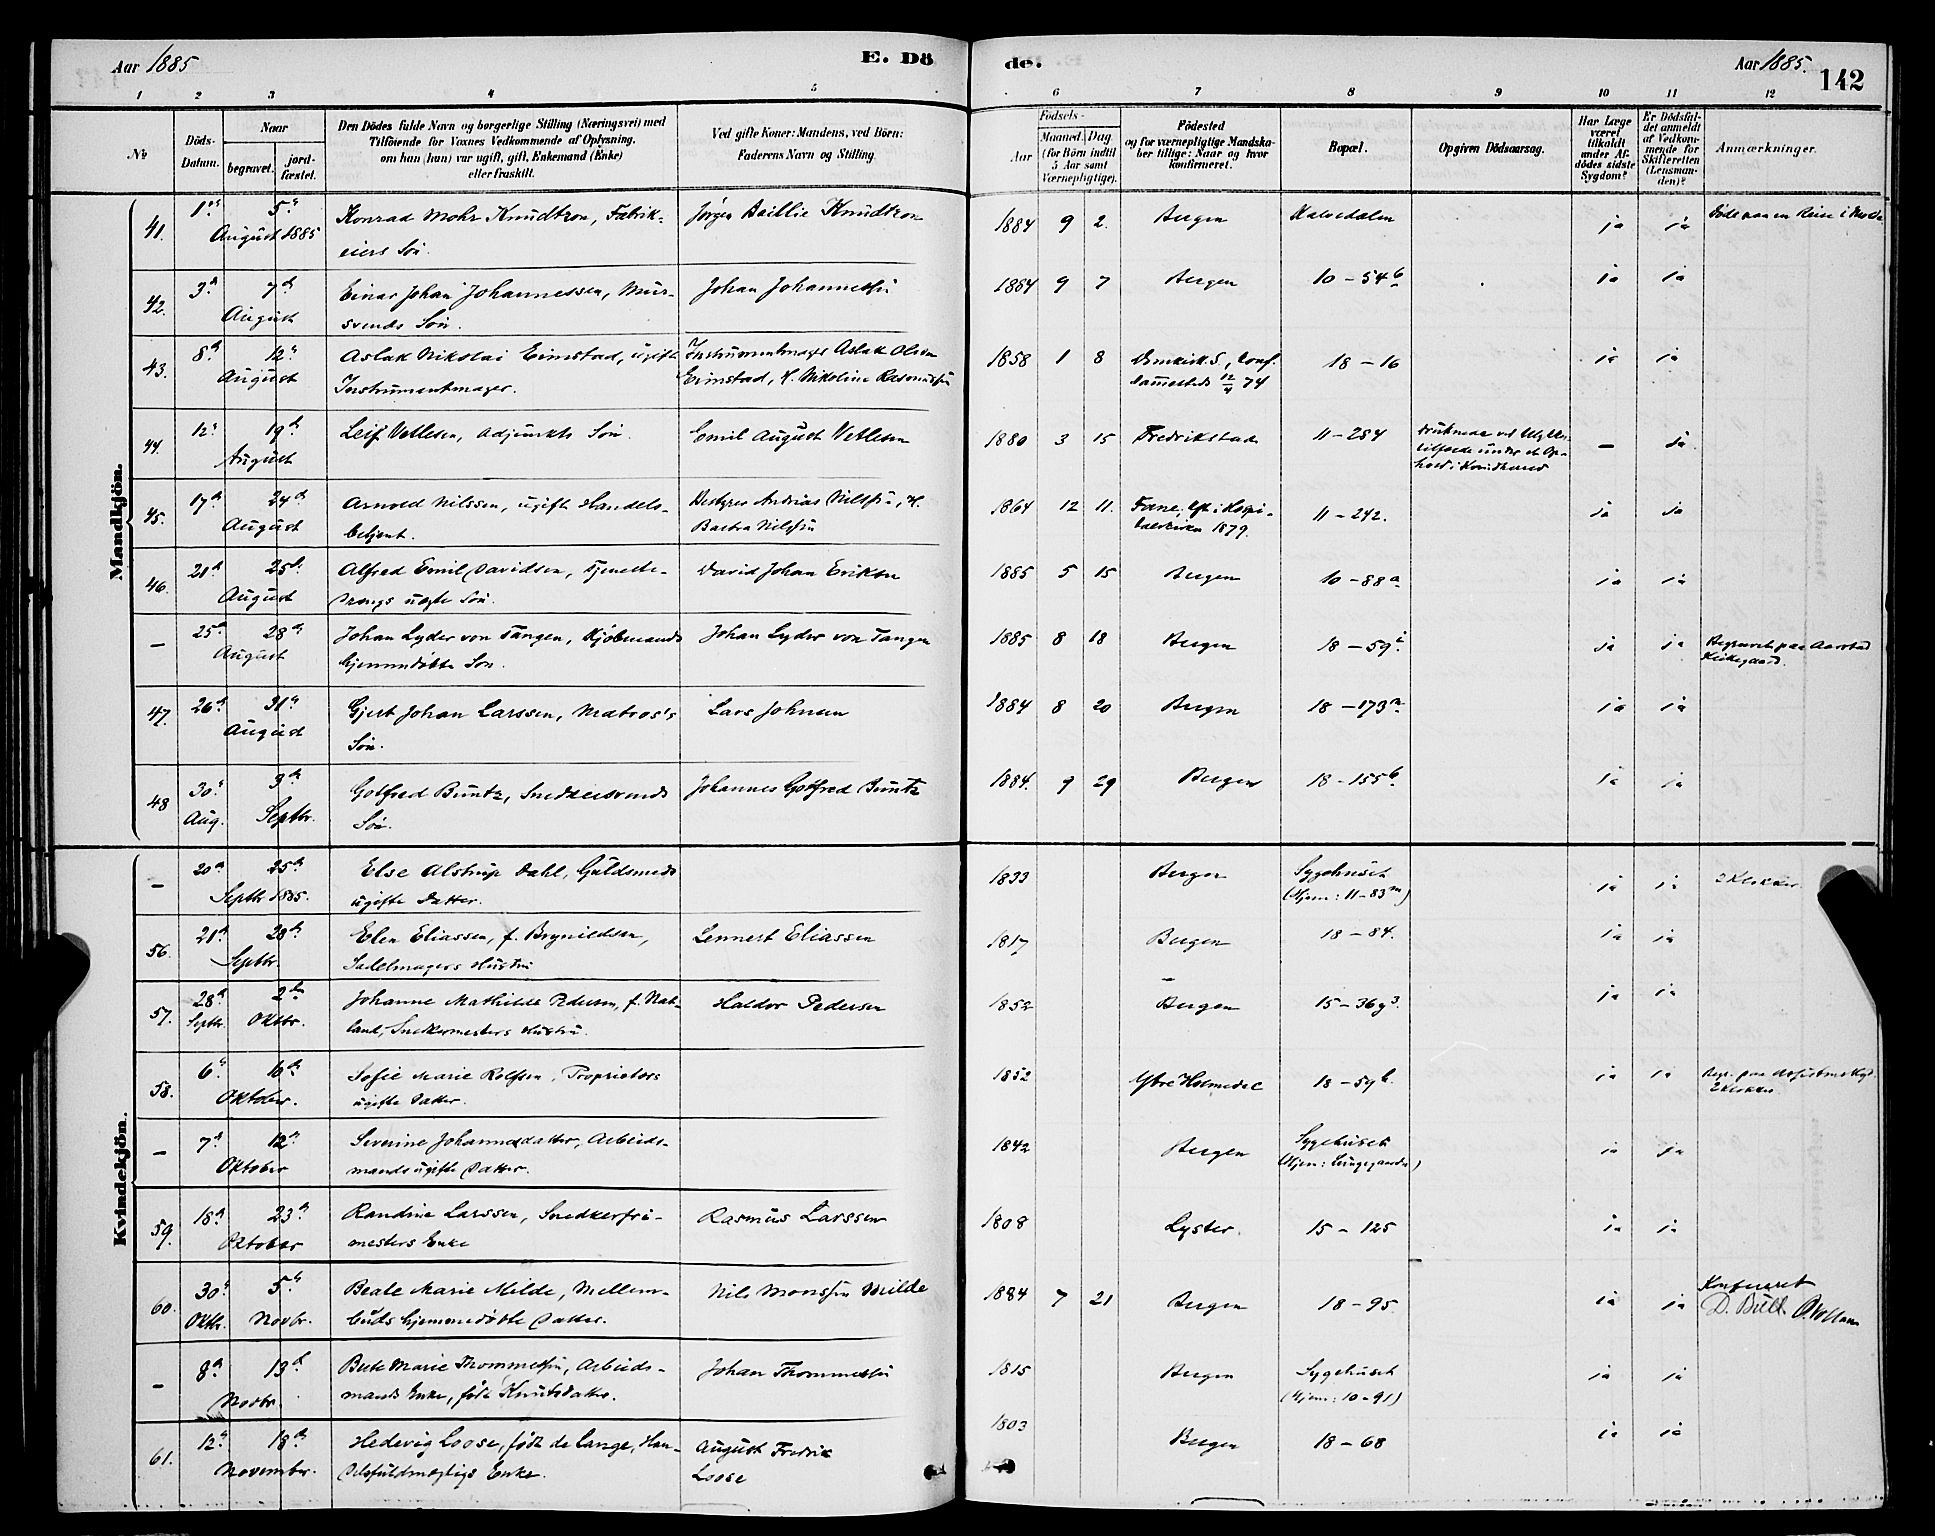 Aar 1885
E. Dö
de.
Aar 1885.
142
1 2 3 4 5 6 7 8 9 10 11 12
№
Döds-
Datum.
Naar
begravet.
jord-
fæstet.
Den Dödes fulde Navn og borgerlige Stilling (Næringsvei) med
Tilföiende for Voxnes Vedkommende af Oplysning,
om han (hun) var ugift, gift, Enkemand (Enke)
eller fraskilt.
Ved gifte Koner: Mandens, ved Börn:
Faderens Navn og Stilling.
Födsels-
Aar
Maaned. Dag
(for Börn indtil
5 Aar samt
Værnepligtige).
Födested
og for værnepligtige Mandska-
ber tillige: Naar og hvor
konfirmeret.
Bopæl.
Opgiven Dödsaarsag.
Har Læge
været
tilkaldt
under Af-
dödes sidste
Sygdom?
Er Dödsfal-
det anmeldt
af Vedkom-
mende for
Skifteretten
(Lensman-
den)?
Anmærkninger.
Mandkjön.
41. 1ste 5te August 1885 Konrad Mohr Knudtzon, Fabrik-
eiers Søn. Jørgen Baillie Knudtzon 1884 9 2. Bergen Kalvedalen ja ja Døde paa en Reise i
42. 3de 7de August Einar Johan Johannessen, Mur-
svends Søn. Johan Johannessen 1884 9 7 Bergen 10-54b ja ja
43. 8de 12te August Aslak Nikolai Eimstad, ugift
Instrumentmager. Instrumentmager Aslak Olsen
Eimstad, H. Nikoline Rasmussen 1858 1 8 Domkirk. S, conf.
sammesteds 12/4 74 18-16 ja ja
44. 12te 19de August Leif Vetlesen, Adjunkts Søn. Emil August Vetlesen 1880 3 15 Fredrikstad 11-284 Druknede ved
tilfælde under et Op-
hold i Kvindherred - ja
45. 17de 24de August Arnold Nilssen, ugift Handels-
betjent. Bestyrer Andreas Nilssen, H.
Nilssen 1864 12 11. Fane, cft. i Hospi-
talskirken 1879. 11-242. ja ja
46. 21de 25de August Alfred Emil Davidsen, Tjeneste-
drengs uægte Søn. David Johan Eriksen 1885 5 15 Bergen 10-88a ja ja
- 25de 28de August Johan Lyder von Tangen, Kjøbmands
hjemmedøbte Søn. Johan Lyder von Tangen 1885 8 18 Bergen 18-59i ja ja Begravet paa Aarstad
Kirkegaard.
47. 26de 31te August Gjert Johan Larssen, Matros's
Søn. Lars Johnsen 1884 8 20 Bergen 18-173m ja ja
48 30te Aug. 3de Septbr. Gotfred Buntz, Snedkersvends
Søn. Johannes Gotfred Buntz 1884. 9 29 Bergen 18-155b ja ja
Kvindekjön.
- 20de 25de Septbr. 1885. Else Alstrup Dahl, Guldsmeds
ugifte Datter. 1833 Bergen Sygehuset
(Hjem: 11-83m) ja ja 2 Klokker.
56. 21de 28de Septbr. Elen Eliassen, f. Brynildsen,
Sadelmagers Hustru Lennert Eliassen 1817 Bergen 18-84. ja ja
57. 28de Septbr. 2den Oktbr. Johanne Mathilde Pedersen, f. Nat-
land, Snedkermesters Hustru. Haldor Pedersen 1852 Bergen 15-36y3. ja ja
58. 6te 10de Oktober. Sofie Marie Rolfsen, Proprietærs
ugifte Datter. 1852 Ytre Holmedal 18-59h. ja ja Begr. paa
2 Klokker
- 7de 12te Oktober Severine Johannesdatter, Arbeids-
mands ugifte Datter. 1842 Bergen Sygehuset
(Hjem: Lungegaarden) ja ja
59. 18de 23de Oktober Randine Larssen, Snedkerfri-
mesters Enke Rasmus Larssen 1808 Lyster. 15-125 ja ja
60. 30te Oktbr. 5te Novbr. Beate Marie Milde, Mellem-
buds hjemmedøbte Datter. Nils Monssen Milde 1884 7 21 Bergen 18-95. ja ja Konfereret
D. Bull
- 8de 13de Novbr. Berte Marie Thommessen, Arbeids-
mands Enke, født Knutsdatter. Johan Thommessen 1815 Bergen Sygehuset
(Hjem: 10-91) ja ja
61. 12te 18de November. Hedevig Loose, født de Lange, Han-
delsfuldmægtigs Enke. August Fredrik
Loose 1803 Bergen 18-68 ja ja